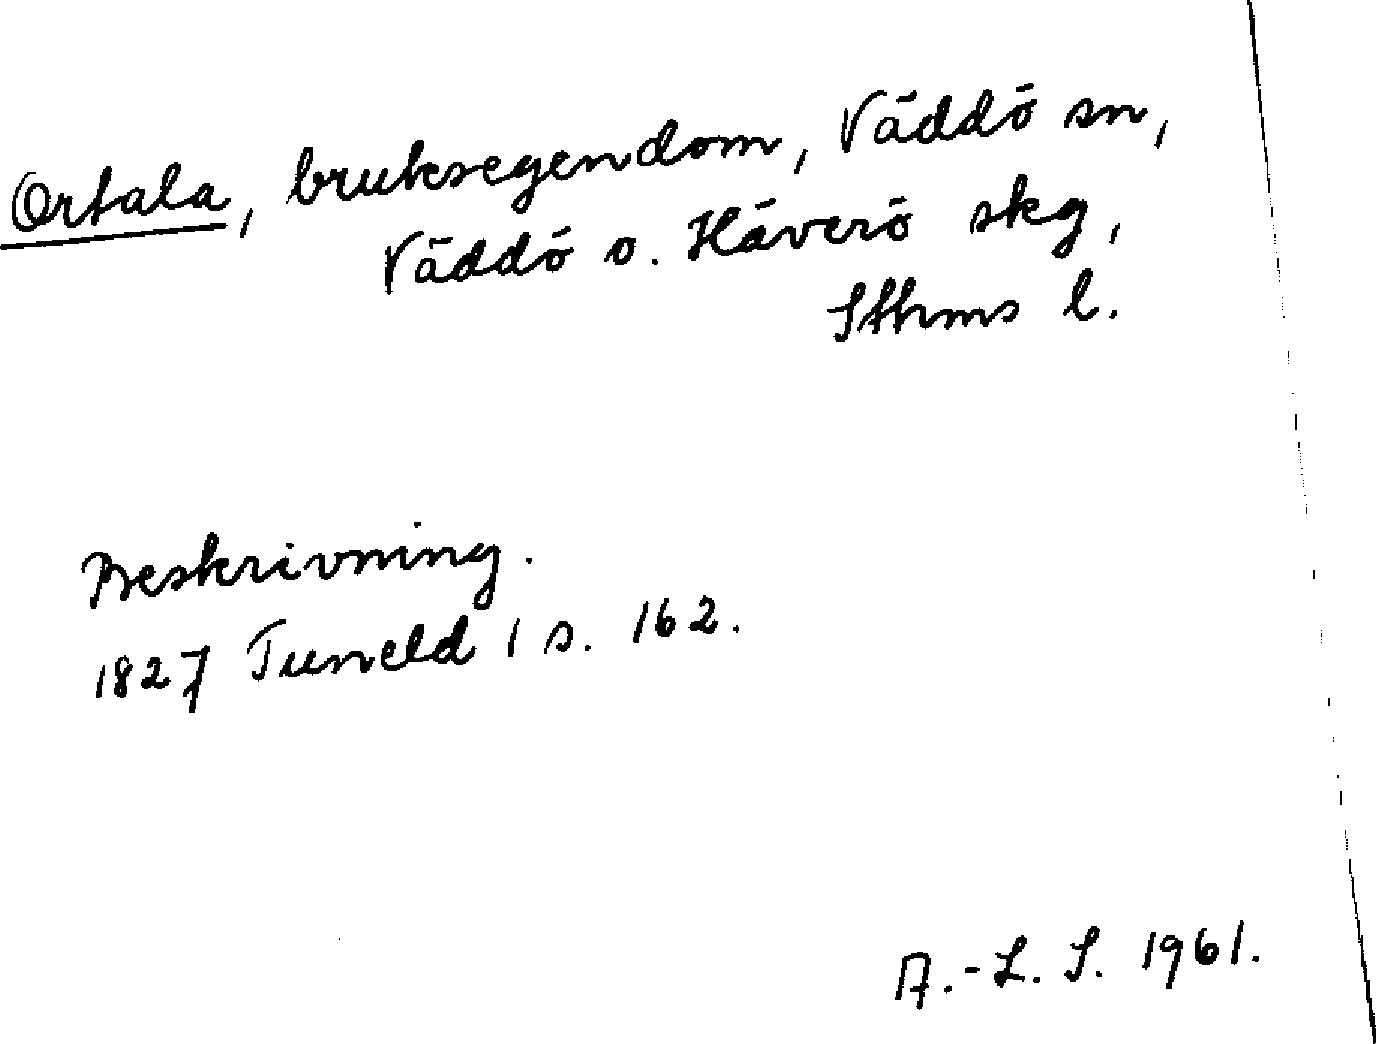 Ortala, bruksegendom, Väddö sn,
Väddö o. Häverö skg,
Sthms l.
Beskrivning.
1827 Tuneld 1 s. 162.
A.-L. S. 1961.